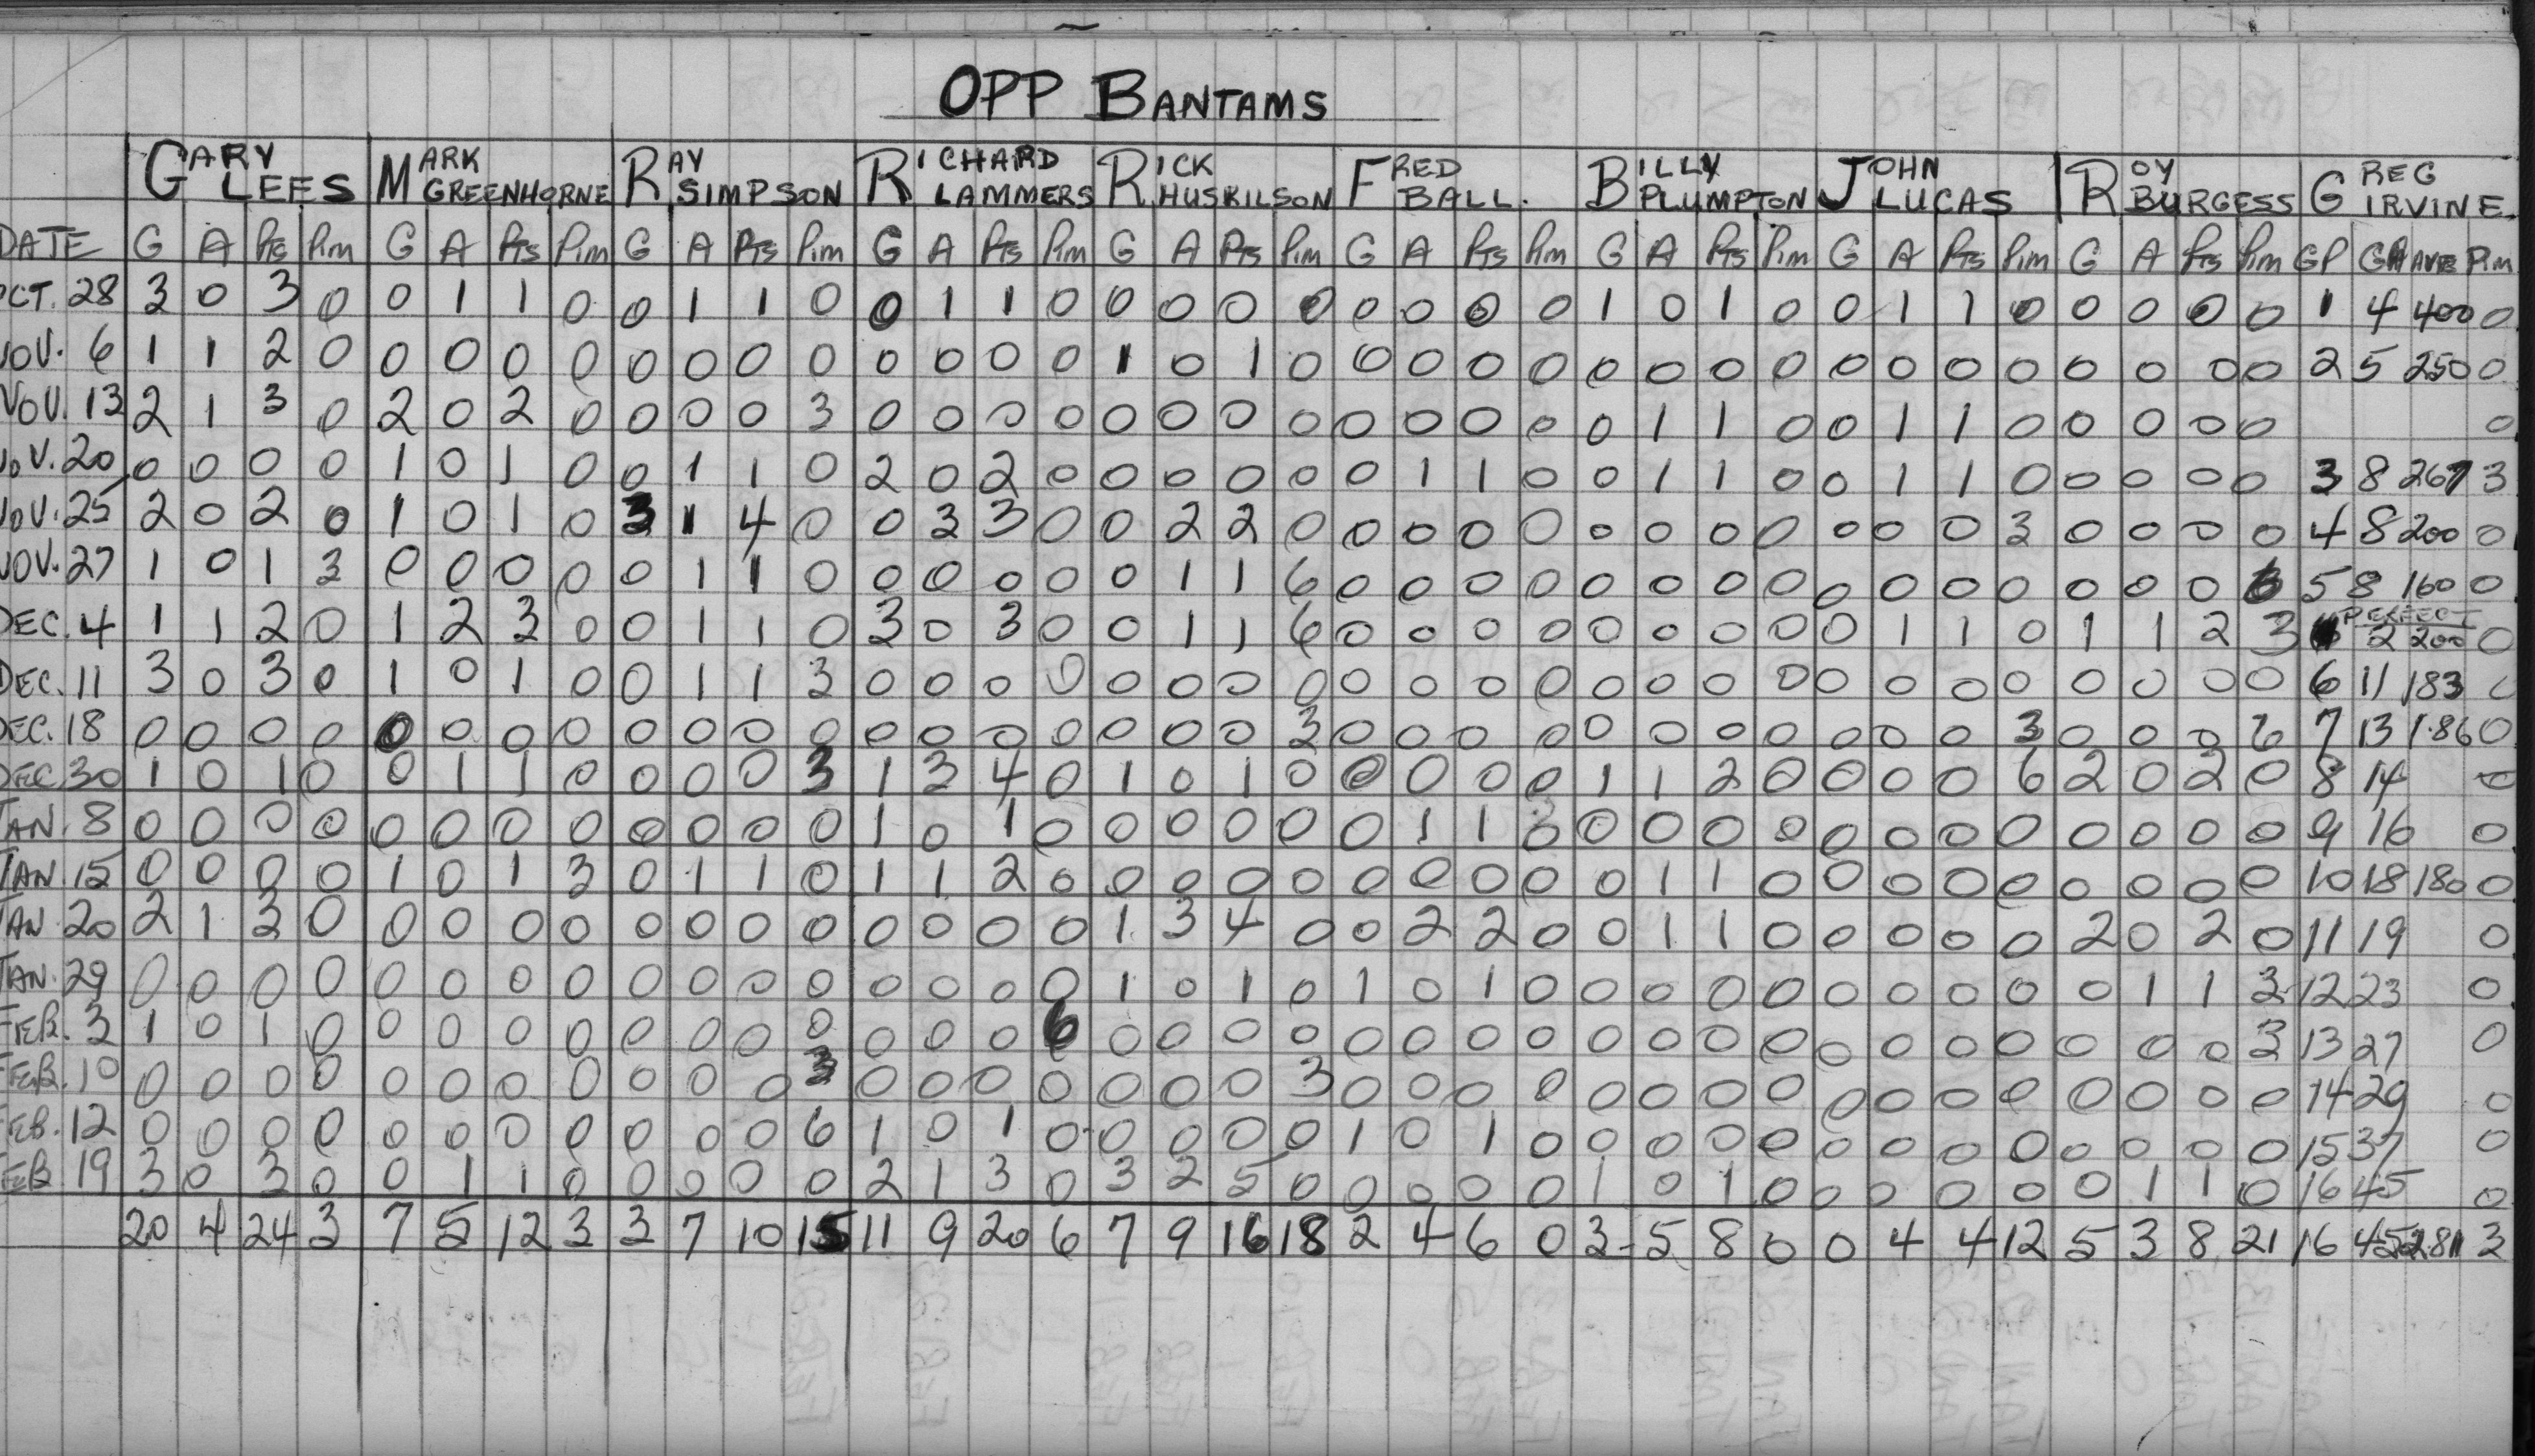 OPP BANTAMS
GARY LEES MARK GREENHORNE RAY SIMPSON RICHARD LAMMERS RICK HUSKILSON FRED BALL. BILLY PLUMPTON JOHN LUCAS ROY BURGESS GREG IRVINE
DATE G A Pts Pim G A Pts Pim G A Pts Pim G A Pts Pim G A Pts Pim G A Pts Pim G A Pts Pim G A Pts Pim G A Pts Pim GP GA AVE Pim
OCT. 28 3 0 3 0 0 1 1 0 0 1 1 0 0 1 1 0 0 0 0 0 0 0 0 0 1 0 1 0 0 1 1 0 0 0 0 0 1 4 400 0
NOV. 6 1 1 2 0 0 0 0 0 0 0 0 0 0 0 0 0 1 0 1 0 0 0 0 0 0 0 0 0 0 0 0 0 0 0 0 0 2 5 250 0
NOV. 13 2 1 3 0 2 0 2 0 0 0 0 3 0 0 0 0 0 0 0 0 0 0 0 0 0 1 1 0 0 1 1 0 0 0 0 0 0
NOV. 20 0 0 0 0 1 0 1 0 0 1 1 0 2 0 2 0 0 0 0 0 0 1 1 0 0 1 1 0 0 1 1 0 0 0 0 0 3 8 267 3
NOV. 25 2 0 2 0 1 0 1 0 3 1 4 0 0 3 3 0 0 2 2 0 0 0 0 0 0 0 0 0 0 0 0 3 0 0 0 0 4 8 200 0
NOV. 27 1 0 1 3 0 0 0 0 0 1 1 0 0 0 0 0 0 1 1 6 0 0 0 0 0 0 0 0 0 0 0 0 0 0 0 6 5 8 160 0
DEC. 4 1 1 2 0 1 2 3 0 0 1 1 0 3 0 3 0 0 1 1 6 0 0 0 0 0 0 0 0 0 1 1 0 1 1 2 3 PERFECT 2 200 0
DEC. 11 3 0 3 0 1 0 1 0 0 1 1 3 0 0 0 0 0 0 0 0 0 0 0 0 0 0 0 0 0 0 0 0 0 0 0 0 6 11 183 0
DEC. 18 0 0 0 0 0 0 0 0 0 0 0 0 0 0 0 0 0 0 0 3 0 0 0 0 0 0 0 0 0 0 0 3 0 0 0 6 7 13 1.86 0
DEC 30 1 0 1 0 0 1 1 0 0 0 0 3 1 3 4 0 1 0 1 0 0 0 0 0 1 1 2 0 0 0 0 6 2 0 2 0 8 14 0
JAN. 8 0 0 0 0 0 0 0 0 0 0 0 0 1 0 1 0 0 0 0 0 0 1 1 0 0 0 0 0 0 0 0 0 0 0 0 0 9 16 0
JAN. 15 0 0 0 0 1 0 1 3 0 1 1 0 1 1 2 0 0 0 0 0 0 0 0 0 0 1 1 0 0 0 0 0 0 0 0 0 10 18 180 0
JAN. 20 2 1 3 0 0 0 0 0 0 0 0 0 0 0 0 0 1 3 4 0 0 2 2 0 0 1 1 0 0 0 0 0 2 0 2 0 11 19 0
JAN. 29 0 0 0 0 0 0 0 0 0 0 0 0 0 0 0 0 1 0 1 0 1 0 1 0 0 0 0 0 0 0 0 0 0 1 1 3 12 23 0
FEB. 3 1 0 1 0 0 0 0 0 0 0 0 0 0 0 0 6 0 0 0 0 0 0 0 0 0 0 0 0 0 0 0 0 0 0 0 3 13 27 0
FEB. 10 0 0 0 0 0 0 0 0 0 0 0 3 0 0 0 0 0 0 0 3 0 0 0 0 0 0 0 0 0 0 0 0 0 0 0 0 14 29 0
FEB. 12 0 0 0 0 0 0 0 0 0 0 0 6 1 0 1 0 0 0 0 0 1 0 1 0 0 0 0 0 0 0 0 0 0 0 0 0 15 37 0
FEB 19 3 0 3 0 0 1 1 0 0 0 0 0 2 1 3 0 3 2 5 0 0 0 0 0 1 0 1 0 0 0 0 0 0 1 1 0 16 45 0
20 4 24 3 7 5 12 3 3 7 10 15 11 9 20 6 7 9 16 18 2 4 6 0 3 5 8 0 0 4 4 12 5 3 8 21 16 45 281 3